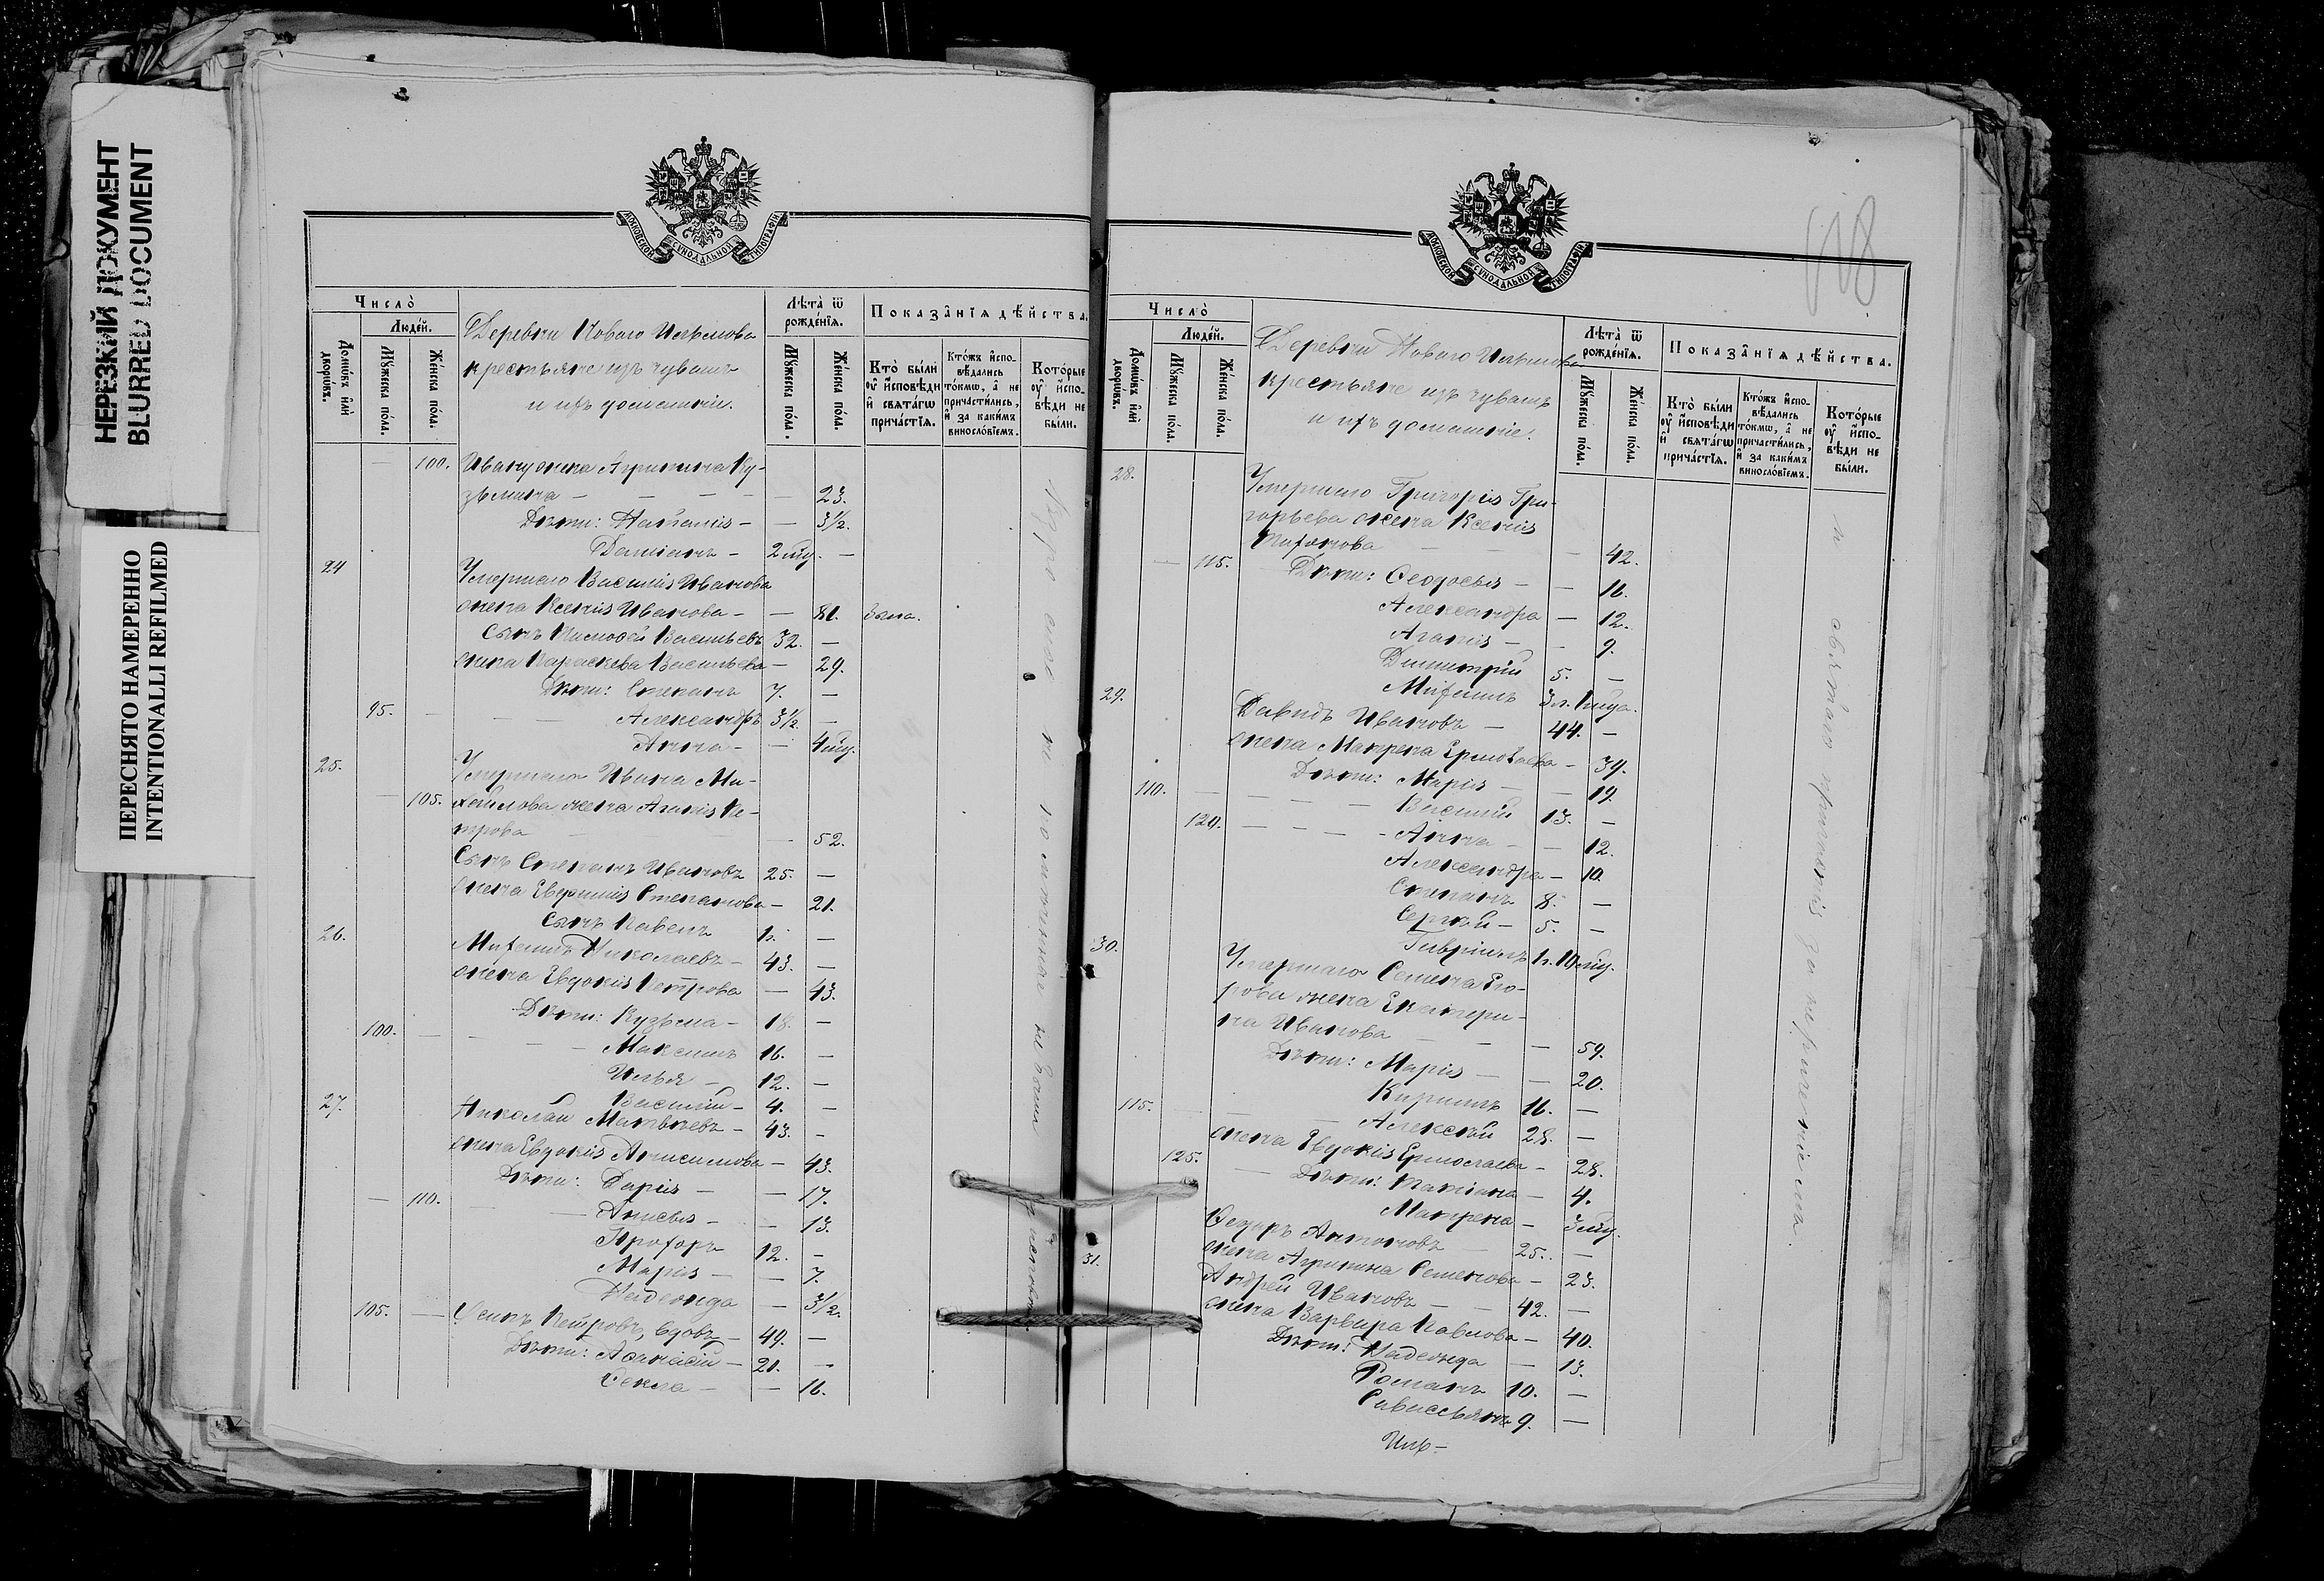 НЕРЕЗКИЙ ДОКУМЕНТ
BLURRED DOCUMENT
ПЕРЕСНЯТО НАМЕРЕННО
INTENTIONALLI REFILMED
МОСКОВСКОЙ СѴНОДАЛЬНОЙ ТИПОГРАФІИ
Число̀
Люде́й.
Домѡ́въ и҆лѝ дворѡ́въ.
Мꙋ́жеска по́ла.
Же́нска по́ла.
Деревни Новаго Ильмова
крестьяне изъ чувашъ
и ихъ домашніе.
Лѣта̀ ѿ рожде́нїѧ.
Мꙋ́жеска по́ла.
Же́нска по́ла.
Показа̑нїѧ дѣ́йства.
Кто̀ бы́ли ᲂу҆ и҆́сповѣди и҆ свѧта́гѡ прича́стїѧ.
Кто́жъ и҆спо-вѣ́дались то́кмѡ, а҆ не причасти́лись, и҆ за каки́мъ виносло́вїемъ.
Кото́рые ᲂу҆ и҆спо-вѣди не бы́ли.
— 100. Ивану жена Агрипина Ку-
зьмина — — — — — 23.
Дѣти: Наталія — — 3½.
Даміанъ — 2 мц. —
24 Умершаго Василія Иванова
жена Ксенія Иванова — — 81. была.
Сынъ Тимофей Васильевъ 32. —
жена Параскева Васильева — 29.
Дѣти: Степанъ 7. —
95. — — — Александръ 3½ —
Анна — — 4 мц.
25. Умершаго Ивана Ми-
— 105. хайлова жена Агапія Пе-
трова — 52.
Сынъ Степанъ Ивановъ 25. —
жена Евфимія Степанова — 21.
Сынъ Павелъ 1 г. —
26. Михаилъ Николаевъ — 43. —
жена Евдокія Петрова — 43.
Дѣти: Кузьма — 18. —
100. — — — Максимъ 16. —
Илья — 12. —
Василій — 4. —
27. Николай Матвѣевъ — 43. —
жена Евдокія Анисимова — 43.
Дѣти: Дарія — — 17.
— 110. — — Анисья — — 13.
Прохоръ 12. —
Марія — — 7.
Надежда — 3½.
105. — Осипъ Петровъ, вдовъ — 49. —
Дѣти: Афанасій — 21. —
Ѳекла — — 16.
Число̀
Люде́й.
Домѡ́въ и҆лѝ дворѡ́въ.
Мꙋ́жеска по́ла.
Же́нска по́ла.
Деревни Новаго Ильмова
крестьяне изъ чувашъ
и ихъ домашніе.
Лѣта̀ ѿ рожде́нїѧ.
Мꙋ́жеска по́ла.
Же́нска по́ла.
Показа̑нїѧ дѣ́йства.
Кто̀ бы́ли ᲂу҆ и҆́сповѣди и҆ свѧта́гѡ прича́стїѧ.
Кто́жъ и҆спо-вѣ́дались то́кмѡ, а҆ не причасти́лись, и҆ за каки́мъ виносло́вїемъ.
Кото́рые ᲂу҆ и҆спо-вѣди не бы́ли.
28. Умершаго Григорія Гри-
горьева жена Ксенія
Тихонова — — 42.
— 115. Дѣти: Ѳеодосья — — 16.
Александра — 12.
Агапія — — 9.
Димитрій 5. —
Михаилъ 3 л. 1 мца.
29. Давидъ Ивановъ — 44. —
жена Матрена Ермолаева — 39.
Дѣти: Марія — — 19.
110. — — — — Василій 13. —
120. — — — — Анна — — 12.
Александра — 10.
Степанъ 8. —
Сергѣй — 5. —
Гавріилъ 1 г. 10 мц.
30. Умершаго Семена Его-
рова жена Екатери-
на Иванова — — — 59.
Дѣти: Марія — — 20.
Кириллъ 16. —
115. — — Алексѣй 28. —
жена Евдокія Ермолаева — 28.
125. — Дѣти: Татіана — 4.
Матрена — 3 мц.
Ѳедоръ Антоновъ — 25. —
жена Агрипина Семенова — 23.
31. Андрей Ивановъ — — 42. —
жена Варвара Павлова — 40.
Дѣти: Надежда — 13.
Романъ 10. —
Савассьянъ 9. —